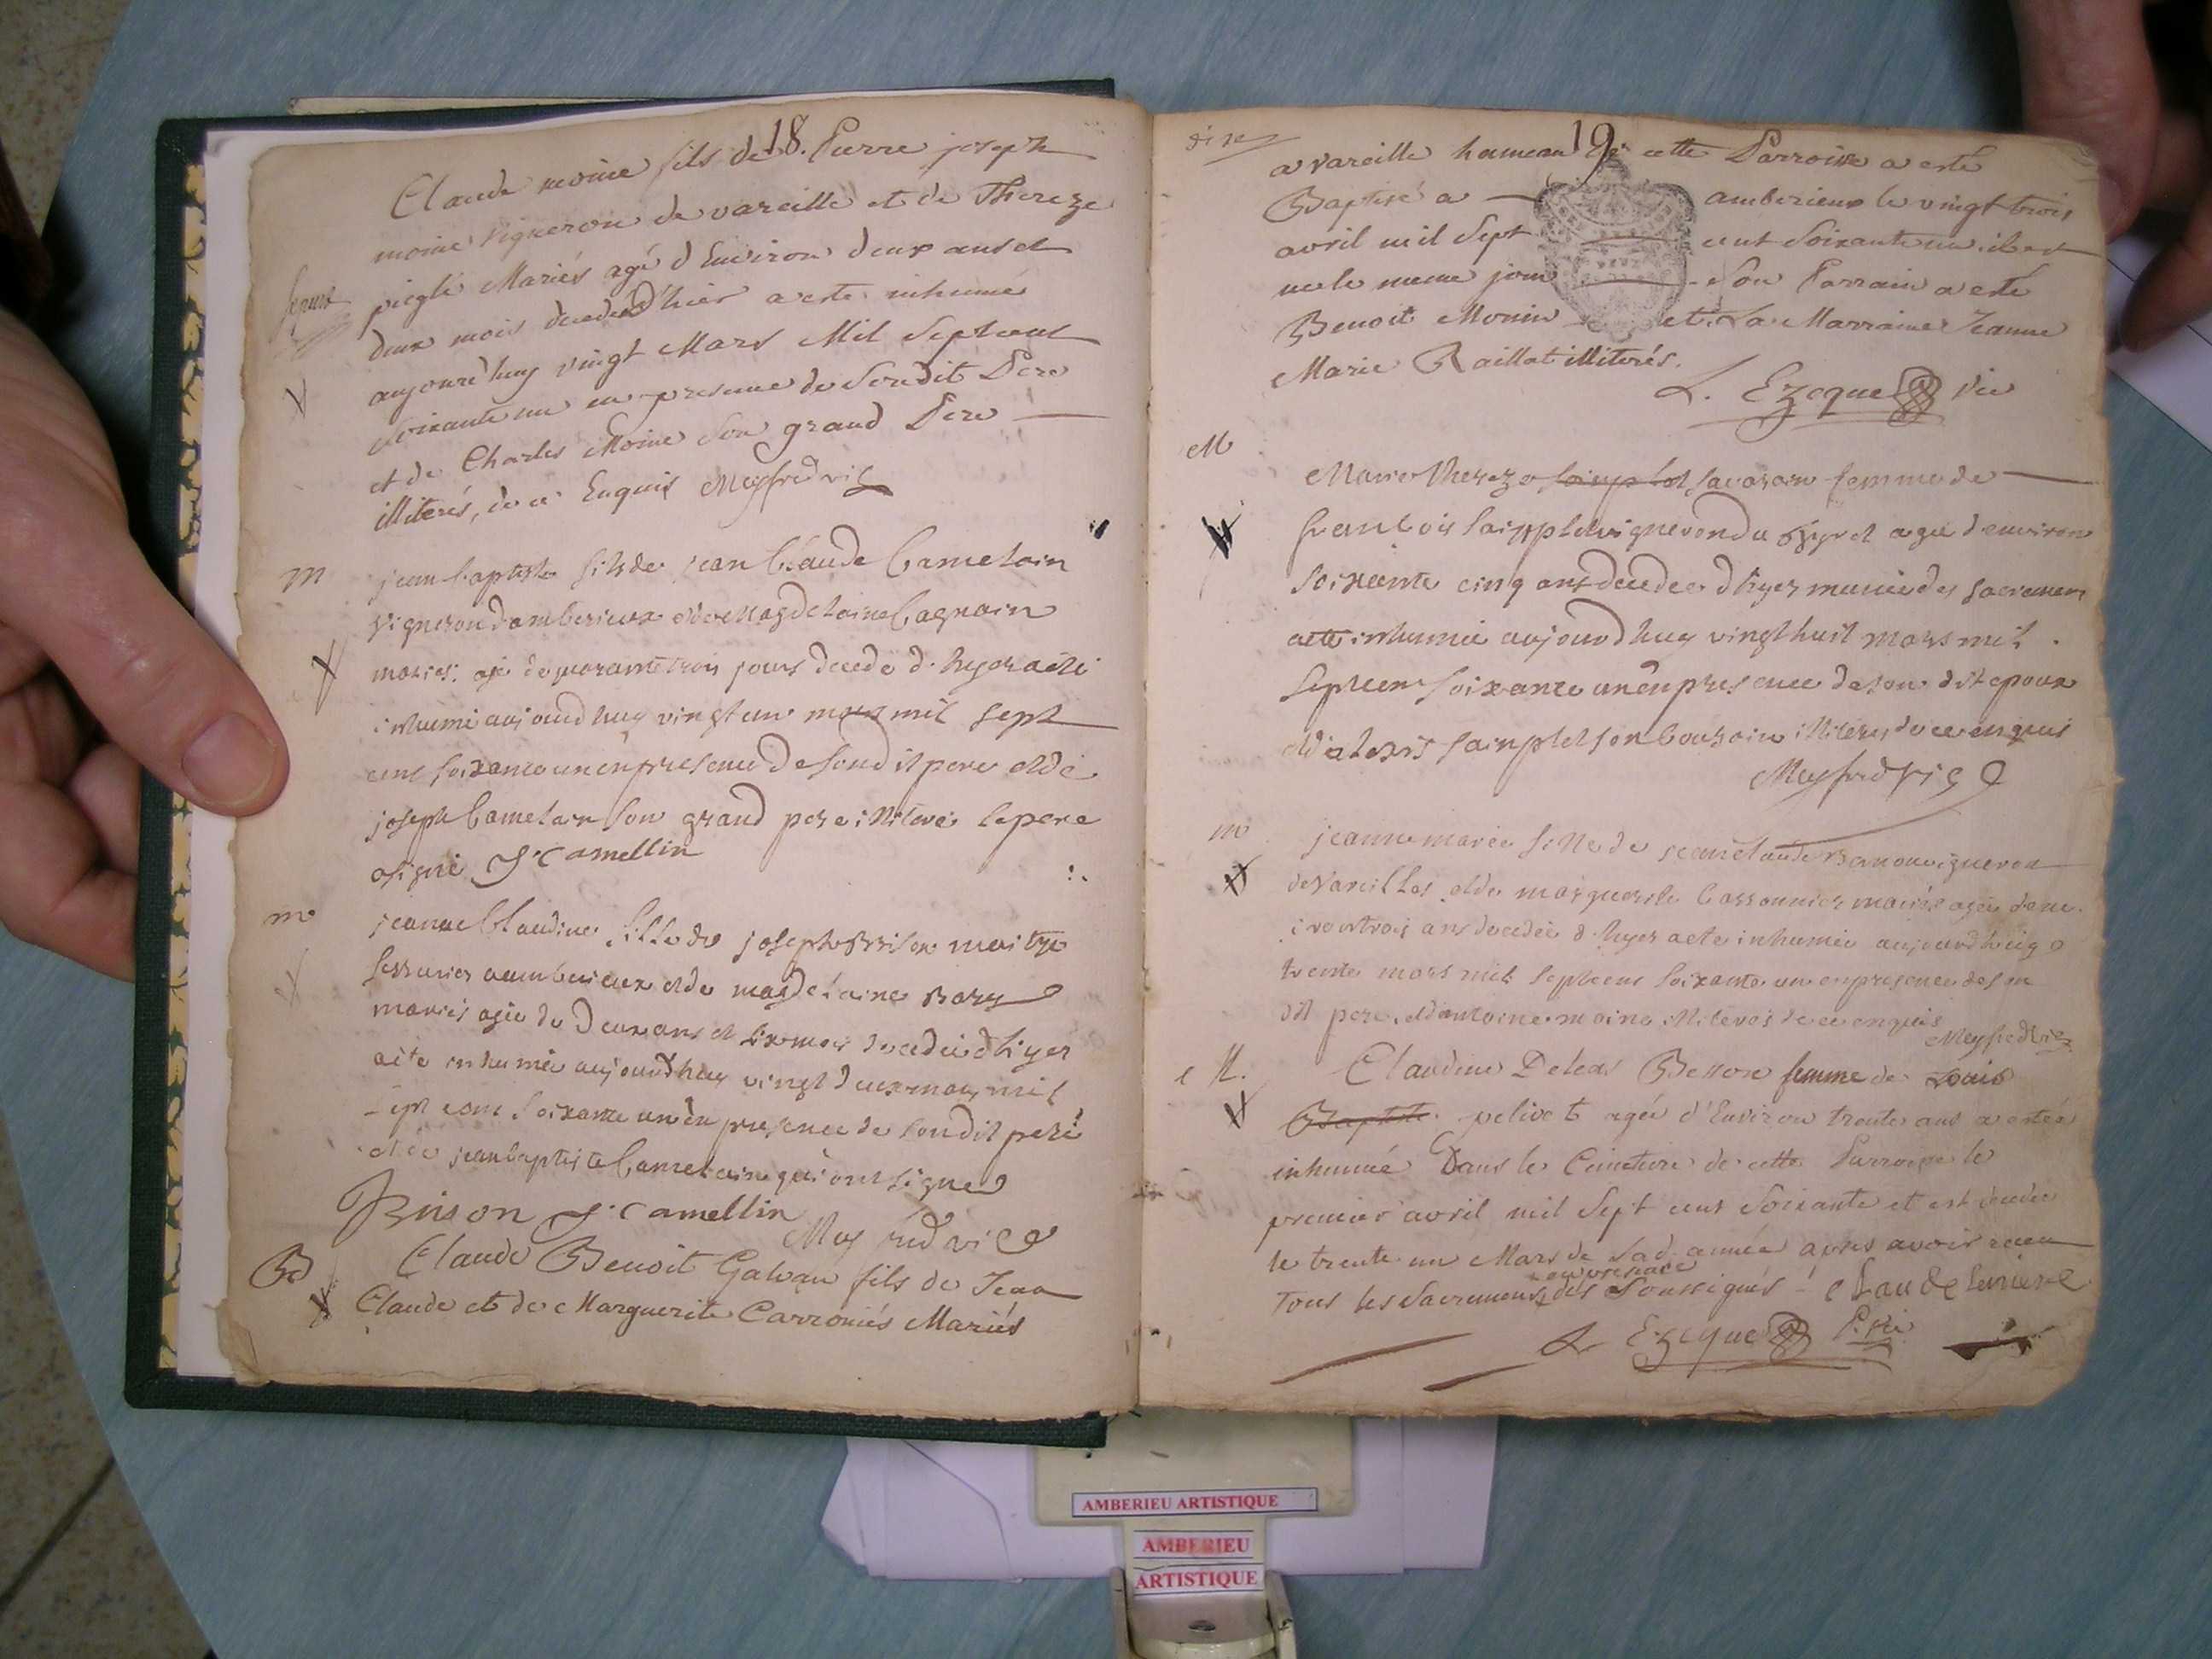 18.
Claude moine fils de Pierre joseph
moine vigneron de vareille et de Thereze
piegle Mariés agé d'Environ deux ans et
deux mois decedé d'hier a esté inhumé
aujourd'huy vingt Mars Mil Sept cent
soixante un en presence de Son dit Pere
et de Charles Moine Son grand Pere
illiterés, de ce Enquis Meyfred vic
m
jean baptiste fils de jean Claude Camelain
vigneron d'amberieux et de Magdelaine Cagnain
mariés agé de quarante trois jours decedé d'hyer a été
inhumé aujourd huy vingt un mars mil sept
cent soixante un en presence de son dit pere et de
joseph Camelain son grand pere illiteré le pere
a signé J. Camellin
m
jeanne Claudine fille de joseph Brison maitre
serrurier a amberieux et de magdelaine Bory
mariés agée de Deux ans et six mois decedée d'hyer
a été inhumée aujourd huy vingt deux mars mil
sept cent soixante un en presence de son dit pere
et de jean baptiste Camelain qui ont signé
Brison J. Camellin
Meyfred vic
B
Claude Benoit Galvan fils de Jean
Claude et de Marguerite Carroniés Mariés
dix
19.
a vareille hameau de cette Parroisse a esté
Baptisé a amberieux le vingt trois
avril mil Sept cent Soixante un il est
né le meme jour Son Parrain a esté
Benoit Monin et La Marraine Jeanne
Marie Raillat illiterés.
L. Ezeque vic
M
Marie Thereze sainplet savarin femme de
francois sainplet vigneron du tiret agée d'environ
soixante cinq ans decedée d'hyer munie des sacremens
a eté inhumée aujourd huy vingt huit mars mil
sept cent soixante un en presence de son dit epoux
et d'alexis sainplet son cousin illiterés de ce enquis
Meyfred vic
m
jeanne marie fille de jean claude vigneron
de vareilles et de marguerite Carronnier mariés agée d'en
viron trois ans decedée d'hyer a eté inhumée aujourd huy
trente mars mil sept cent soixante un en presence de son
dit pere, et d'antoine moine illiterés de ce enquis
Meyfred vic
M.
Claudine Deleas Besson femme de Louis
Baptiste pelivet agée d'Environ trente ans a estée
inhumée Dans le Cimetiere de cette Parroisse le
premier avril mil Sept cent Soixante et est decedée
le trente un Mars de Sad. année apres avoir receu
Tous les Sacremens en presence des Soussignés
L. Ezeque
AMBERIEU ARTISTIQUE
AMBERIEU
ARTISTIQUE